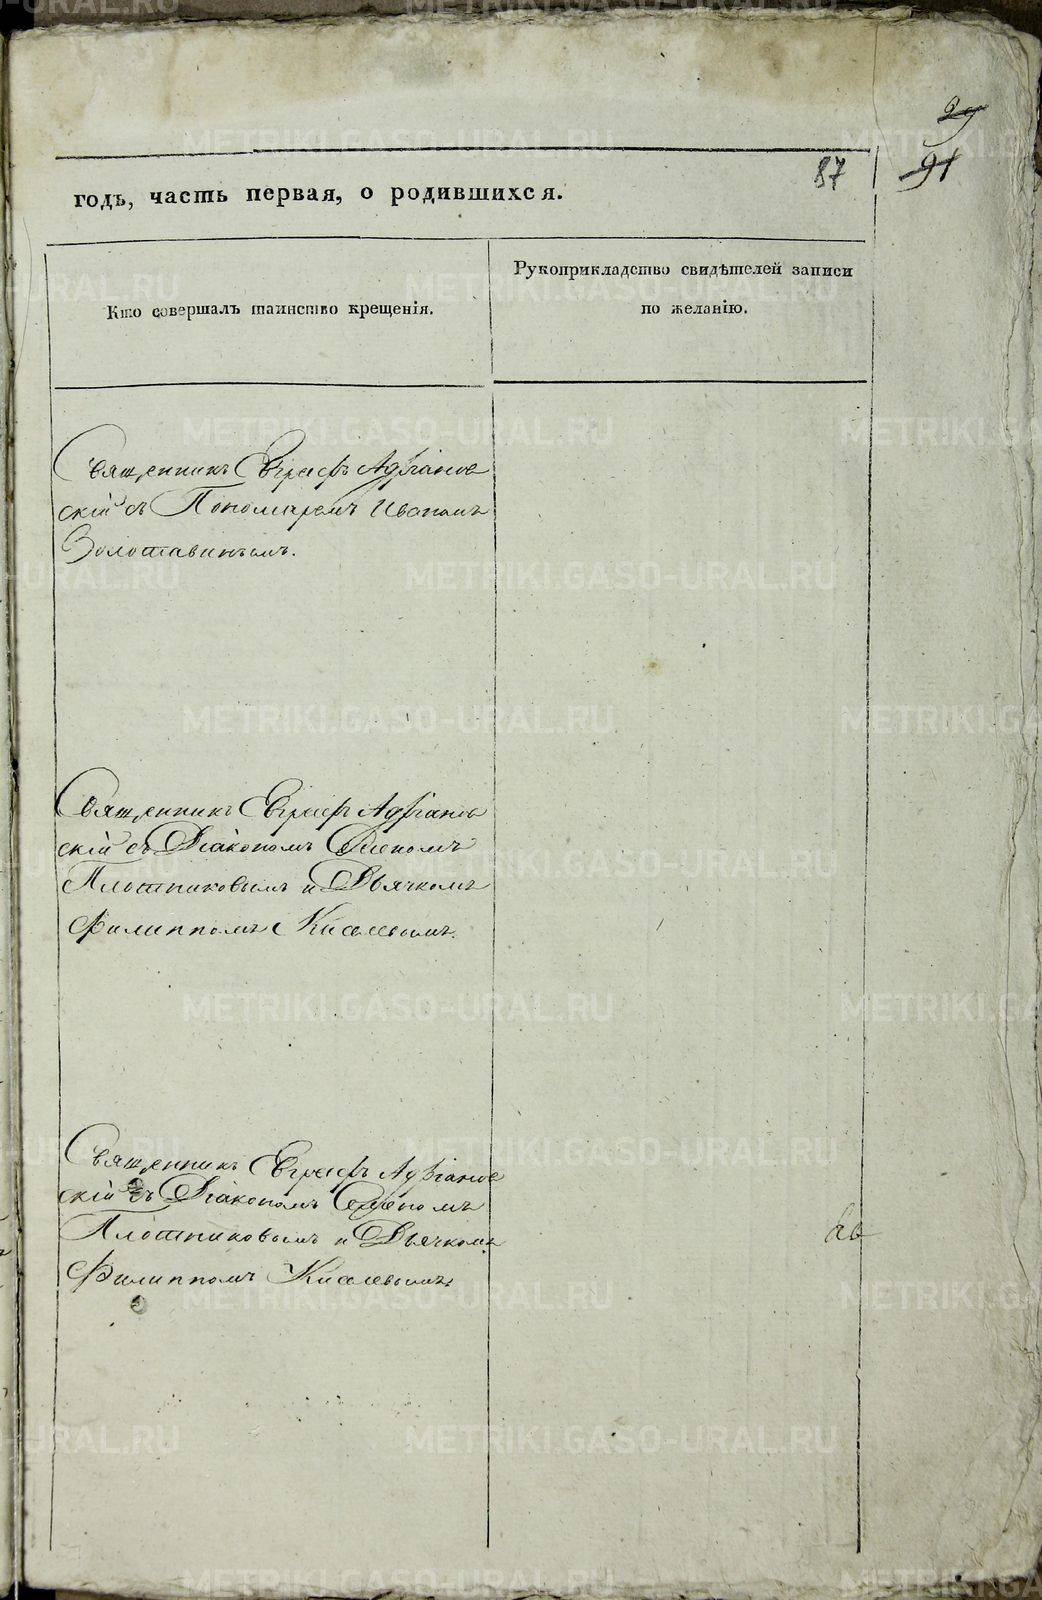 89
91
87
годъ, часть первая, о родившихся.
Кто совершалъ таинство крещенія.
Рукоприкладство свидѣтелей записи
по желанію.
Священникъ Евграфъ Адріанов
скій съ Пономаремъ Иваномъ
Золотавинымъ.
Священникъ Евграфъ Адріанов
скій съ Діакономъ
Плотниковымъ и Дьячкомъ
Филиппомъ Киселевымъ.
Священникъ Евграфъ Адріанов
скій съ Діакономъ
Плотниковымъ и Дьячкомъ
Филиппомъ Киселевымъ.
METRIKI.GASO-URAL.RU